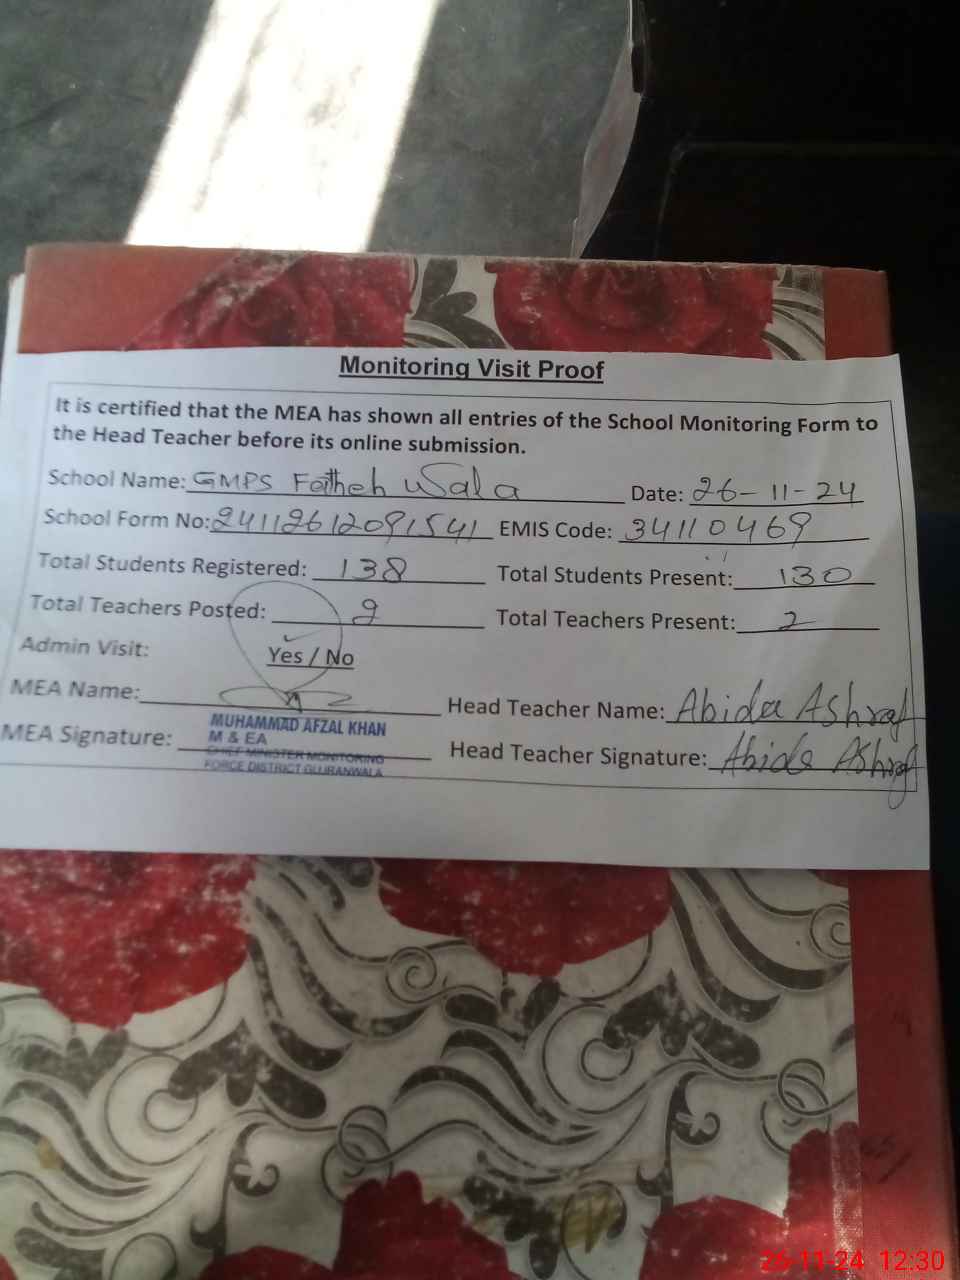 Monitoring Visit Proof
It is certified that the MEA has shown all entries of the School Monitoring Form to
the Head Teacher before its online submission.
School Name: GMPS Fatheh Wala Date: 26-11-24
School Form No: 24112612091541 EMIS Code: 34110469
Total Students Registered: 138 Total Students Present: 130
Total Teachers Posted: 2 Total Teachers Present: 2
Admin Visit: Yes / No
MEA Name: Head Teacher Name: Abida Ashraf
MUHAMMAD AFZAL KHAN
M & EA
MEA Signature: Head Teacher Signature: Abida Ashraf
CHIEF MINISTER MONITORING
FORCE DISTRICT GUJRANWALA
26-11-24 12:30